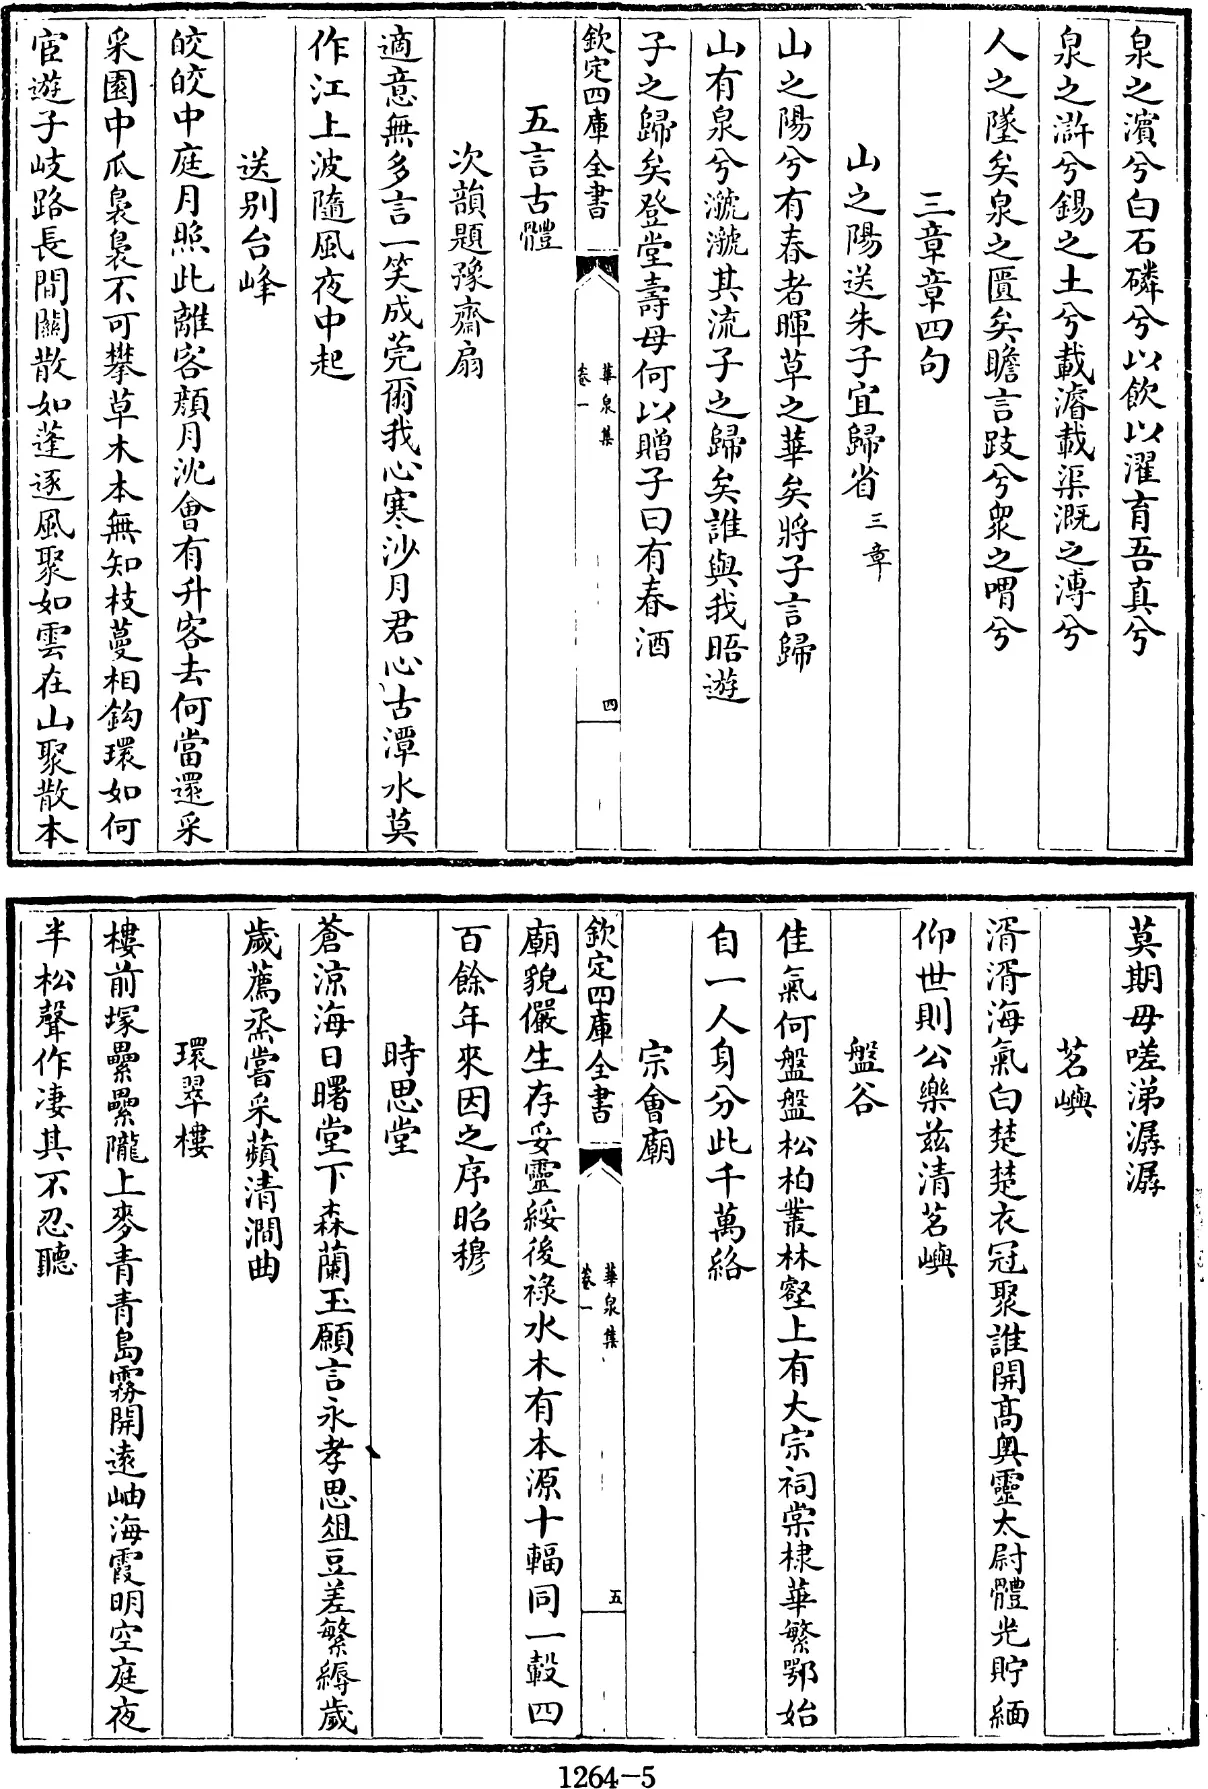 泉之濱兮白石磷兮以飲以濯育吾真兮
泉之滸兮錫之土兮載濬載渠溉之溥兮
人之墜矣泉之匱矣瞻言跂兮衆之喟兮
三章章四句
山之陽送朱子宜歸省三章
山之陽兮有春者暉草之華矣將子言歸
山有泉兮㶁㶁其流子之歸矣誰與我晤遊
子之歸矣登堂壽母何以贈子曰有春酒
欽定四庫全書
華泉集
卷一
四
五言古體
次韻題豫齋扇
適意無多言一笑成莞爾我心寒沙月君心古潭水莫
作江上波隨風夜中起
送別台峰
皎皎中庭月照此離客顏月沈會有升客去何當還采
采園中瓜裊裊不可攀草木本無知枝蔓相鈎環如何
宦遊子岐路長間關散如蓬逐風聚如雲在山聚散本
莫期毋嗟涕潺潺
茗嶼
湑湑海氣白楚楚衣冠聚誰開高奥靈太尉體光貯緬
仰世則公樂兹清茗嶼
盤谷
佳氣何盤盤松柏叢林壑上有大宗祠棠棣華繁鄂始
自一人身分此千萬絡
宗會廟
欽定四庫全書
華泉集
卷一
五
廟貌儼生存妥靈綏後禄水木有本源十輻同一轂四
百餘年來因之序昭穆
時思堂
蒼涼海日曙堂下森蘭玉願言永孝思俎豆差繁縟歲
歲薦烝嘗采蘋清澗曲
環翠樓
樓前塚纍纍隴上麥青青島霧開遠岫海霞明空庭夜
半松聲作凄其不忍聽
1264-5